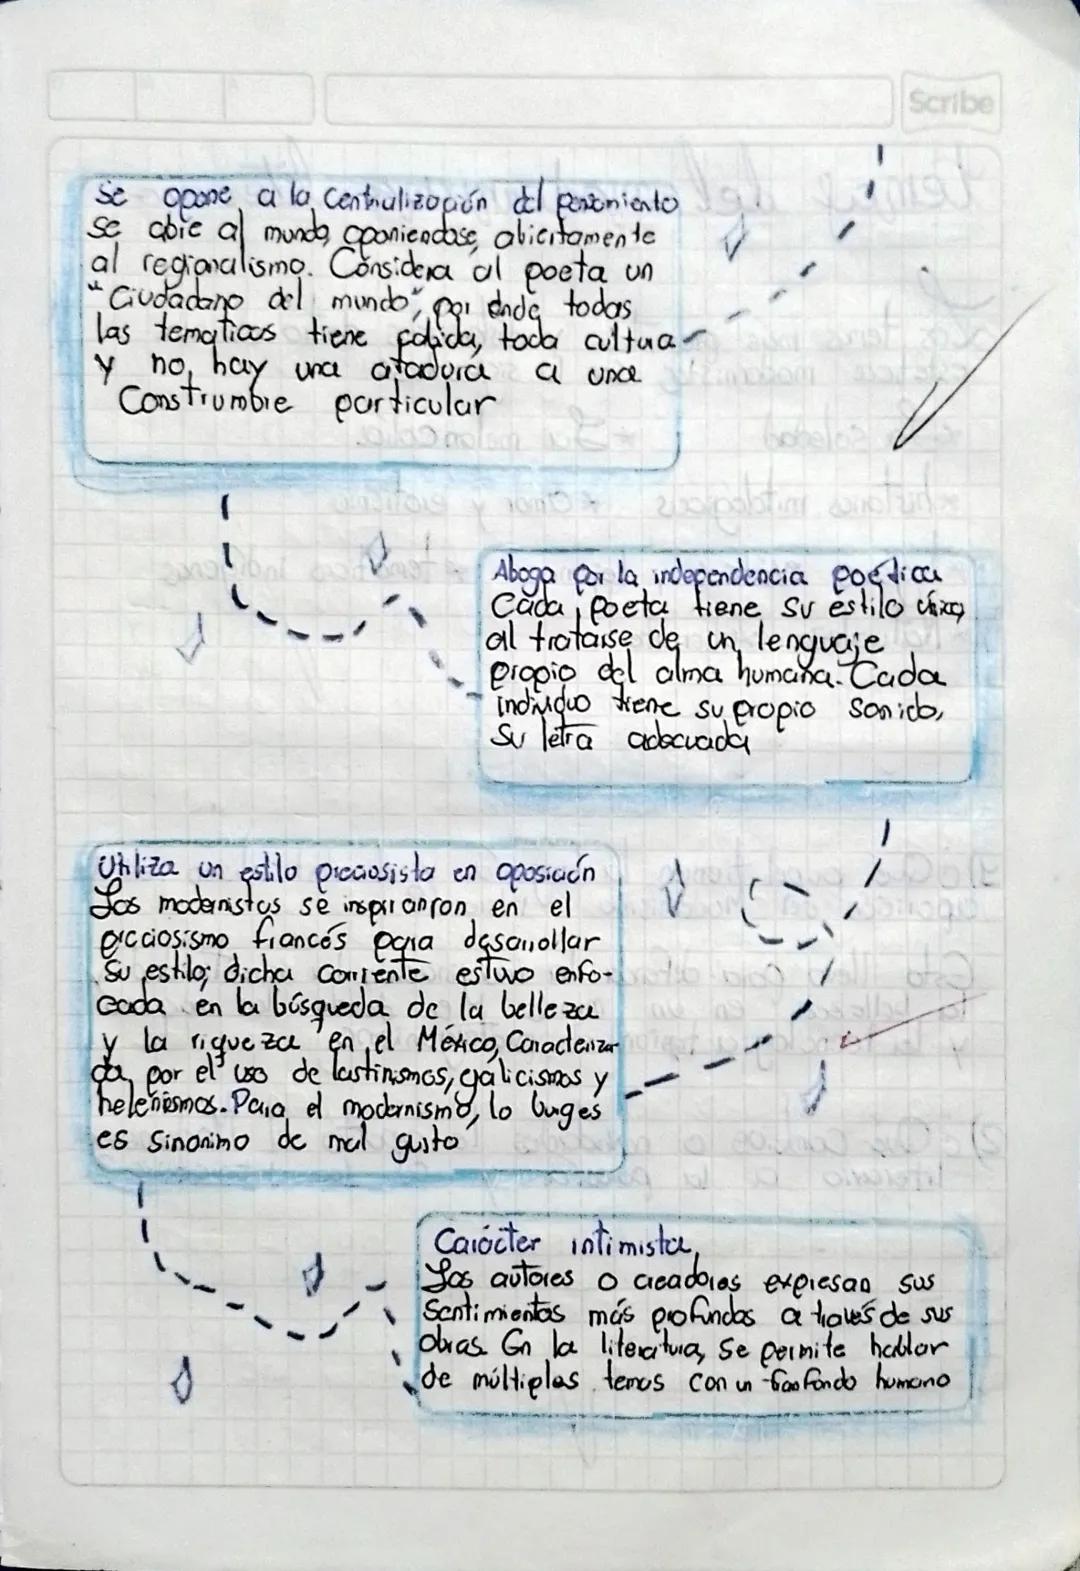 Scribe
Se opone a la Centralización del pensamiento
Se abre al mundo, oponiendose, abiertamente
al regionalismo. Considera al poeta un
"Ciudadano del mundo", por ende todas
las tematicas tiene cabida, toda cultura
y no, hay una atadura a una
Construmbre particular
Aboga por la independencia poética
Cada poeta tiene su estilo único,
al tratarse de un lenguaje
propio del alma humana. Cada
individuo tiene su propio sonido,
Su letra adecuada
Utiliza un estilo preciosista en oposición
Los modernistas se inspiraron en el
preciosismo francés para desarrollar
Su estilo; dicha corriente estuvo enfo-
cada en la búsqueda de la belleza
y la riqueza en el México, Caracteriza-
da, por el uso de lastinismos, galicismos y
helenismos. Para el modernismo, lo buges
es sinonimo de mal gusto
Carácter intimista,
Los autores o creadores expresan sus
Sentimientos más profundos a través de sus
obras. En la literatura, Se permite hablar
de múltiples temas con un trasfondo humano